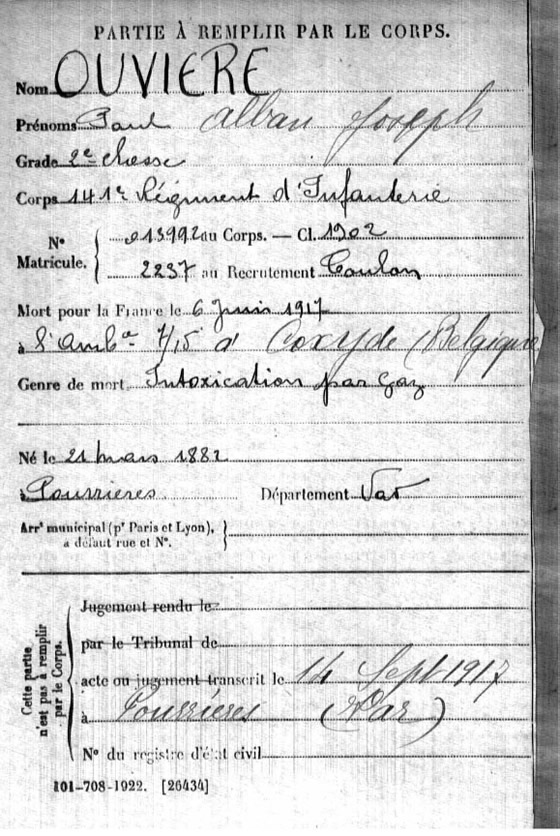 PARTIE À REMPLIR PAR LE CORPS.
Nom OUVIERE
Prénoms Paul Alban Joseph
Grade 2e classe
Corps 141e Régiment d'Infanterie
N° Matricule. { 013992 au Corps. — Cl. 1902
2237 au Recrutement Toulon
Mort pour la France le 6 Juin 1917
à l'Ambce 7/15 à Coxyde (Belgique
Genre de mort Intoxication par Gaz
Né le 21 mars 1882
à Pourrières Département Var
Arrt municipal (pr Paris et Lyon), à défaut rue et N°. }
Cette partie n'est pas à remplir par le Corps.
Jugement rendu le
par le Tribunal de
acte ou jugement transcrit le 14 Sept 1917
à Pourrières (Var)
N° du registre d'état civil
101-708-1922. [26434]